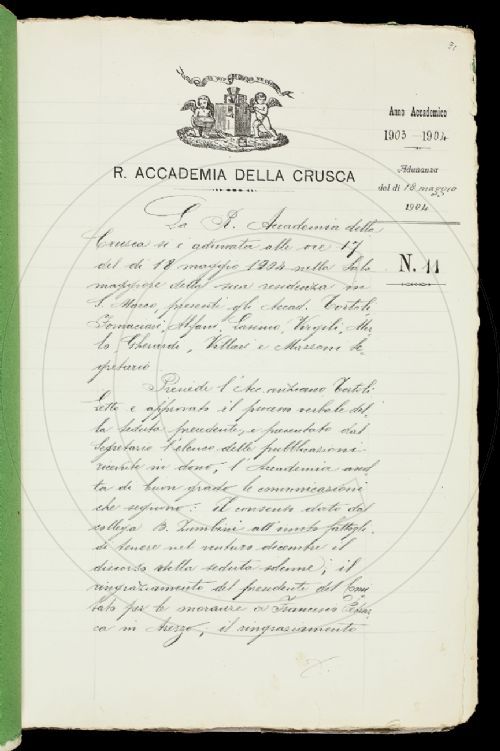 31
Anno Accademico
1903 - 1904
Adunanza
del dì 18 maggio
1904
R. ACCADEMIA DELLA CRUSCA
N. 11
La R. Accademia della
Crusca si è adunata alle ore 17
del dì 18 maggio 1904 nella Sala
maggiore della sua residenza in
S. Marco, presenti gli Accad. Tortoli,
Fornaciari, Alfani, Rasmo, Vergili, Mer-
lo, Gherardi, Villari e Mazzoni Se-
gretario
Presiede l'Acc. anziano Tortoli
Letto e approvato il processo verbale del-
la seduta precedente, e presentato dal
Segretario l'elenco delle pubblicazioni
ricevute in dono, l'Accademia ascol-
ta di buon grado le comunicazioni
che seguono: il consenso dato dal
collega B. Zumbini all'invito fattogli
di tenere nel venturo decembre il
discorso della seduta solenne; il
ringraziamento del presidente del Comi-
tato per le onoranze a Francesco Petrar-
ca in Arezzo; il ringraziamento